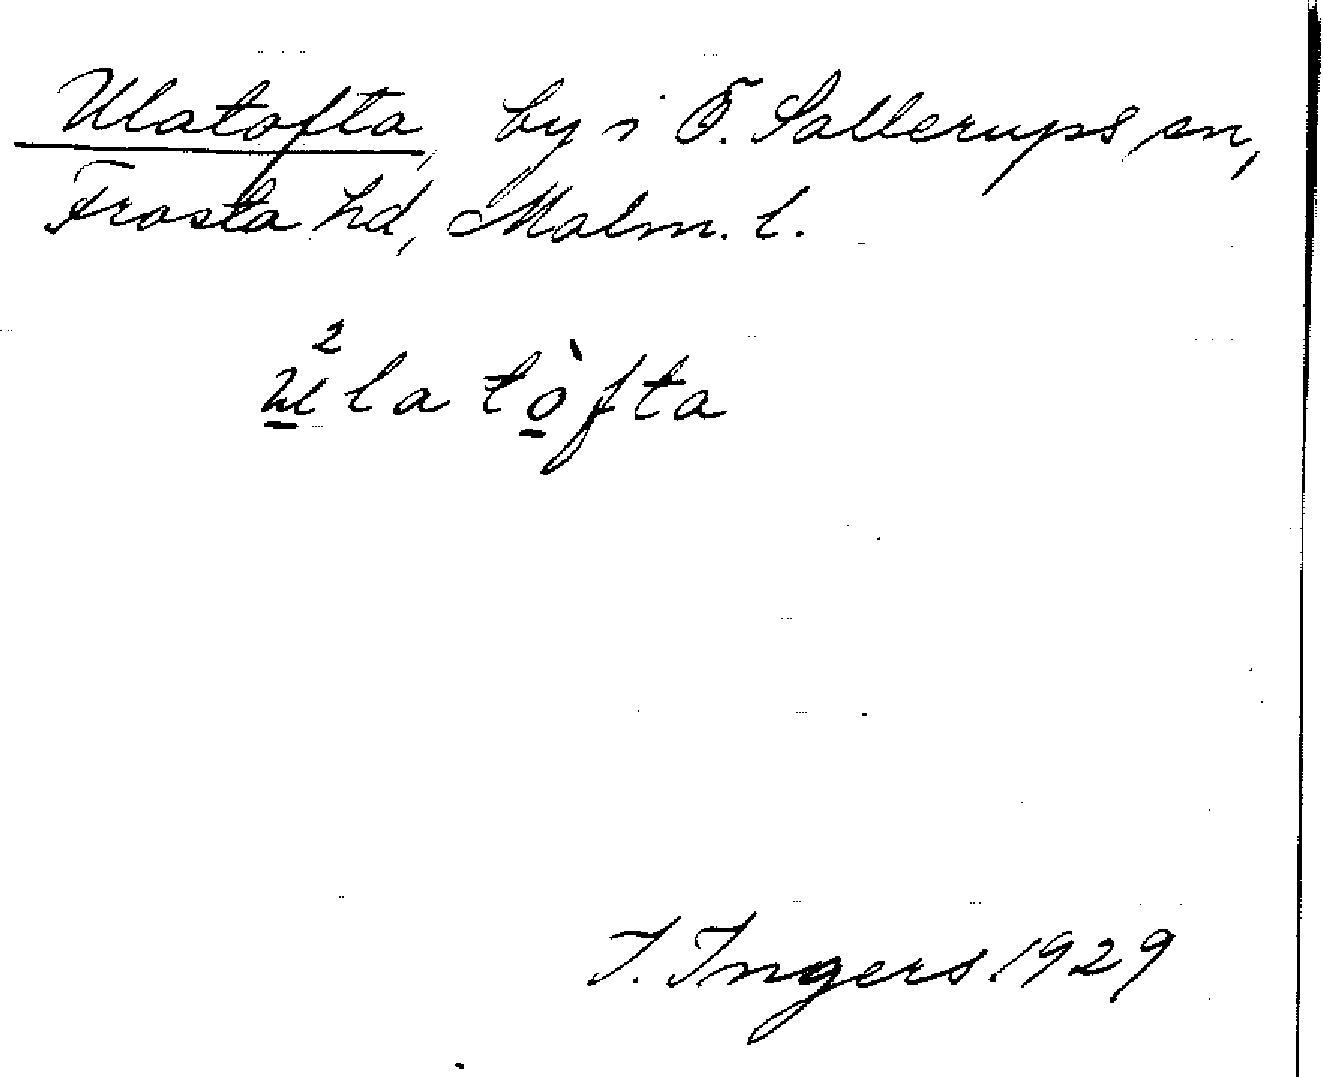 Ulatofta, by i Ö. Sallerups sn,
Frosta hd, Malm. l.
²ulatòfta
I. Ingers 1929